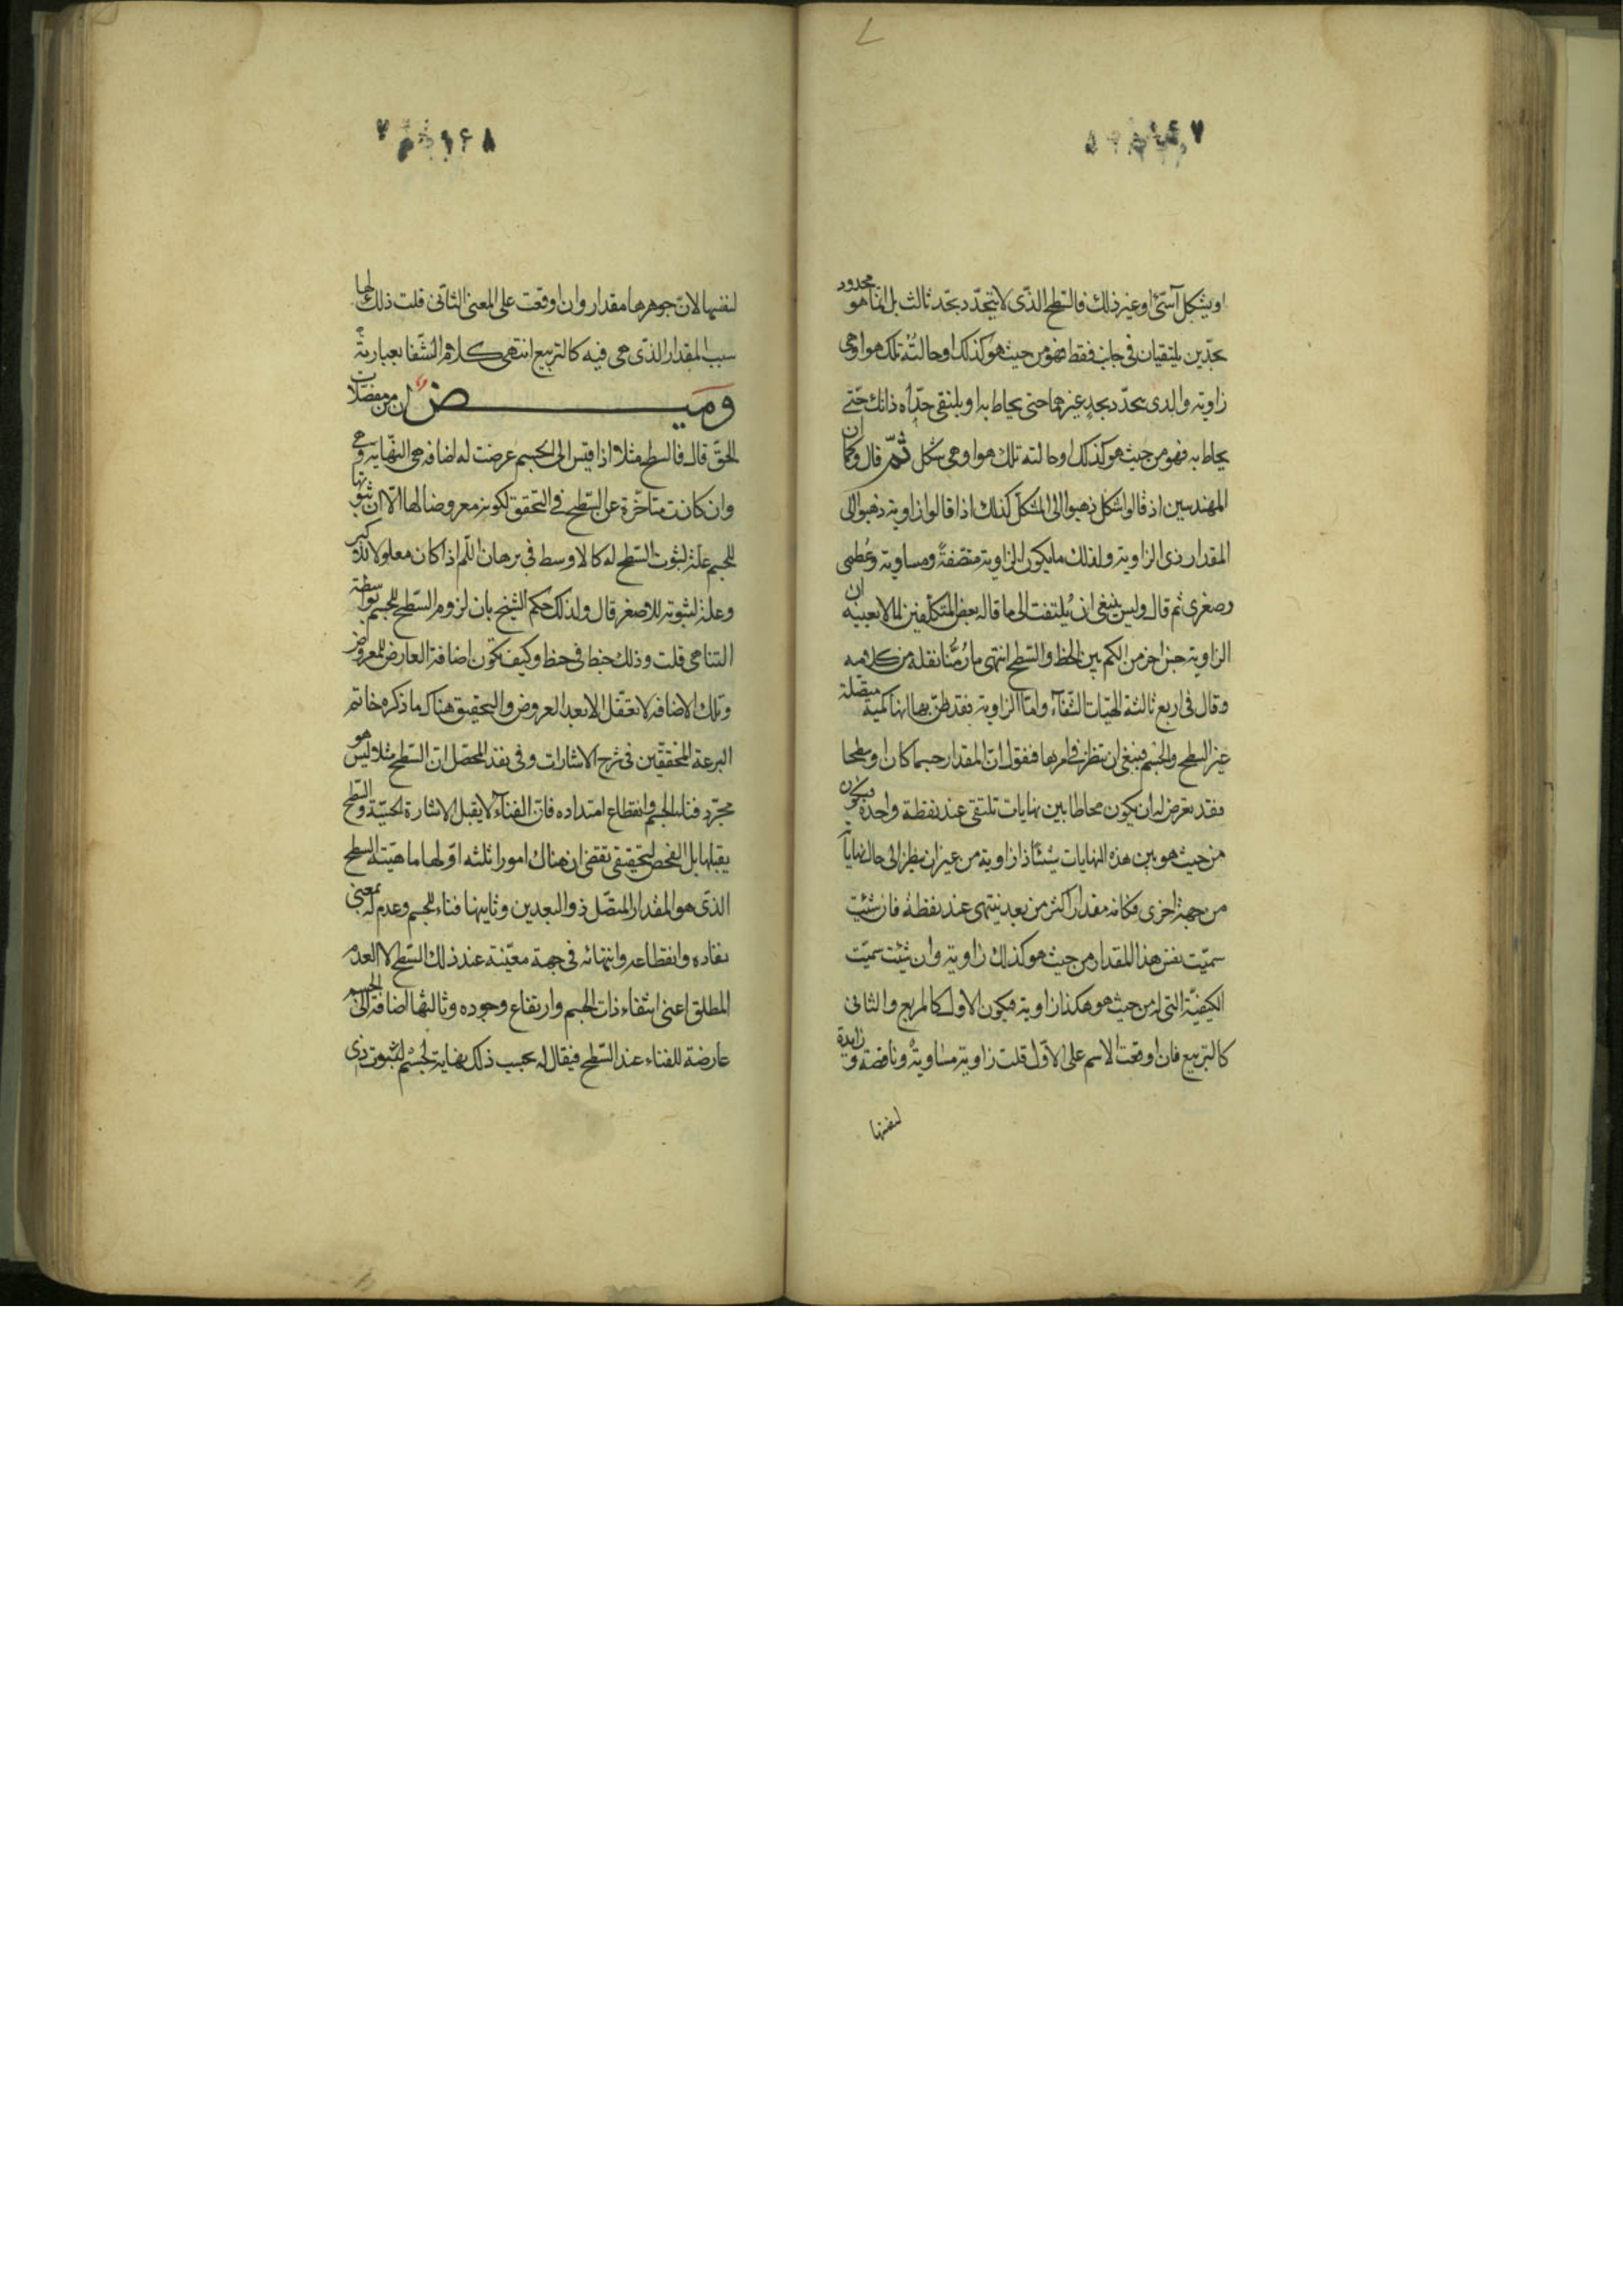 او يشكل آسّى او غير ذلك فالسّطح الذّى لا يتحدّد بحدّ ثالث بل انّما هو محدود
بحدّين يلتقيان فى جانب فقط فهو من حيث هو كذلك او حالته تلك هو او هى
زاوية والذى يحدّد بحدٍ غيرهما حتى يحاط به او يلتقى حدّاه ذانك حتّى
يحاط به فهو من حيث هو كذلك او حالته تلك هو او هى شكل ثمّ قال وكما ان
المهندسين اذ قالوا شكل ذهبوا الى المشكّل كذلك اذا قالوا زاوية ذهبوا الى
المقدار ذى الزاوية ولذلك ما يكون الزاوية متنصّفةً ومساوية وعُظمى
وصغرى ثم قال وليس ينبغى ان يُلتفت الى ما قاله بعض المتكلّفين لما لا يعنيه ان
الزاوية جنس اخر من الكم بين الخط والسّطح انتهى ما رُمنا نقله من كلامه
وقال فى رابع ثالثة الهيّات الشّفآء وامّا الزاوية فقد ظنّ بها انها كمية متصلة
غير السّطح والجسم فينبغى ان ننظر فى امرها فنقول انّ المقدار جسما كان او سطحا
فقد يعرض له ان يكون محاطا بين نهايات تلتقى عند نقطة واحدة فيكون
من حيث هو بين هذه النهايات شيئا ذا زاوية من غير ان ينظر الى حال نهاياته
من جهة اخرى فكانه مقدار اكثر من بعد ينتهى عند نقطة فان شئت
سمّيت نفس هذا المقدار من حيث هو كذلك زاوية وان شئت سمّيت
الكيفيّة التى له من حيث هو هكذا زاوية فيكون الاول كالمربع والثانى
كالتربيع فان اوقعت الاسم على الاوّل قلت زاوية مساوية وناقصة وزايدة
لنفسها
لنفسها لانّ جوهرها مقدار وان اوقعت على المعنى الثانّى قلت ذلك لها
بسبب المقدار الذّى هى فيه كالتربيع انتهى كلام الشّفا بعبارته
وميض ان من مفصّلات
الحقّ قال فالسطح مثلا اذا قيس الى الجسم عرضت له اضافة هى النّهاية وهى
وان كانت متاخّرة عن السّطح فى التحقق لكونه معروضا لها الّا ان ثبوتها
للجسم علّة لثبوت السّطح له كالاوسط فى برهان اللّم اذا كان معلولا للاكبر
وعلّة لثبوته للاصغر قال ولذلك حكم الشّيخ بان لزوم السّطح للجسم بواسطة
التناهى قلت وذلك خبط فى خبط وكيف تكون اضافة العارض للمعروض
وتلك الاضافة لا تعقل الا بعد العروض والتحقيق هناك ما ذكره خاتم
البرعة المحقّقين فى شرح الاشارات وفى نقد المحصّل انّ السّطح مثلا ليس هو
مجرّد فناء الجسم وانقطاع امتداده فانّ الفنآء لا يقبل الاشارة الحسّيّة والسّطح
يقبلها بل الفحص التحقيقى تقضى ان هناك امورا ثلثه اوّلها ماهيّة السّطح
الذّى هو المقدار المتصّل ذو البعدين وثانيها فناء للجسم وعدم له بمعنى
نفاده وانقطاعه وانتهائه فى جهة معيّنة عند ذلك السّطح لا العدم
المطلق اعنى انتفاء ذات الجسم وارتفاع وجوده وثالثها اضافة الى الجسم
عارضة للفناء عند السّطح فيقال له بحسب ذلك نهاية لجسم لثبوت ذى